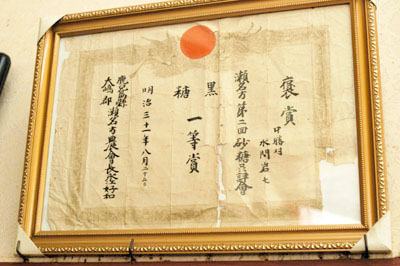 褒賞
中勝村
水間岩七
瀬名方第二回砂糖品評會
黒糖
一等賞
明治三十一年八月二十二日
鹿児島縣
大島郡
瀬名方農會長